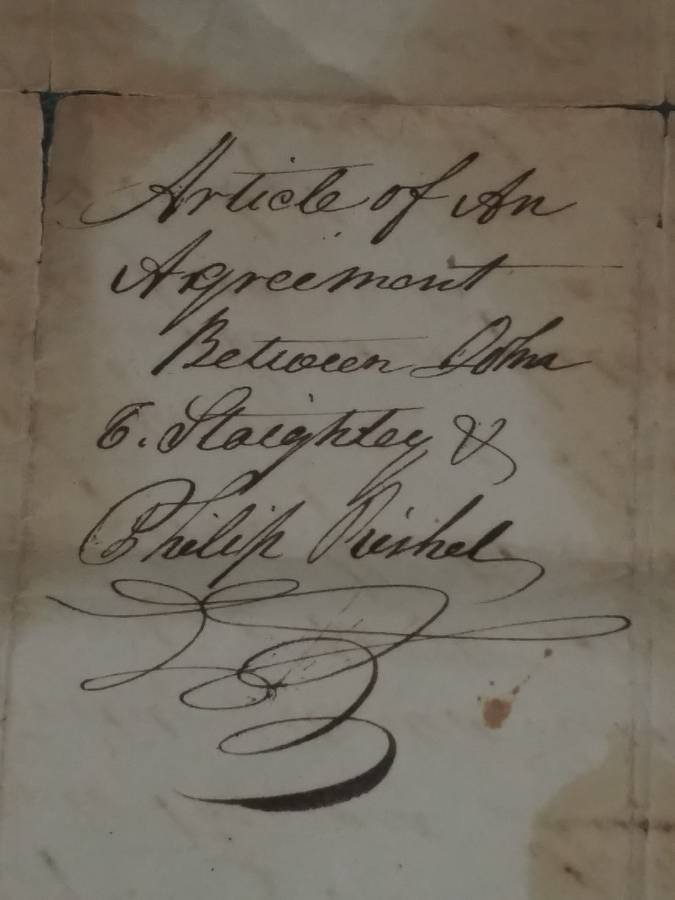 Article of An
Agreement
Between John
E. Slaightey &
Philip Rishel